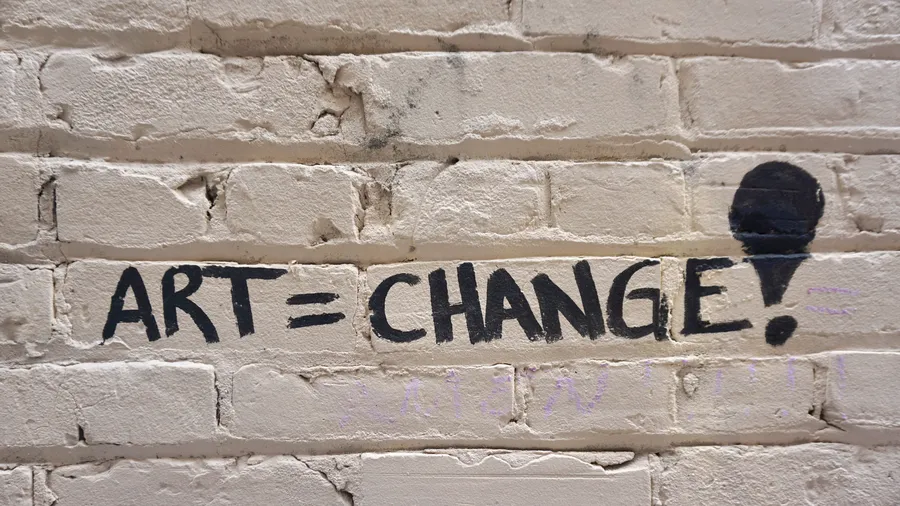 ART = CHANGE!